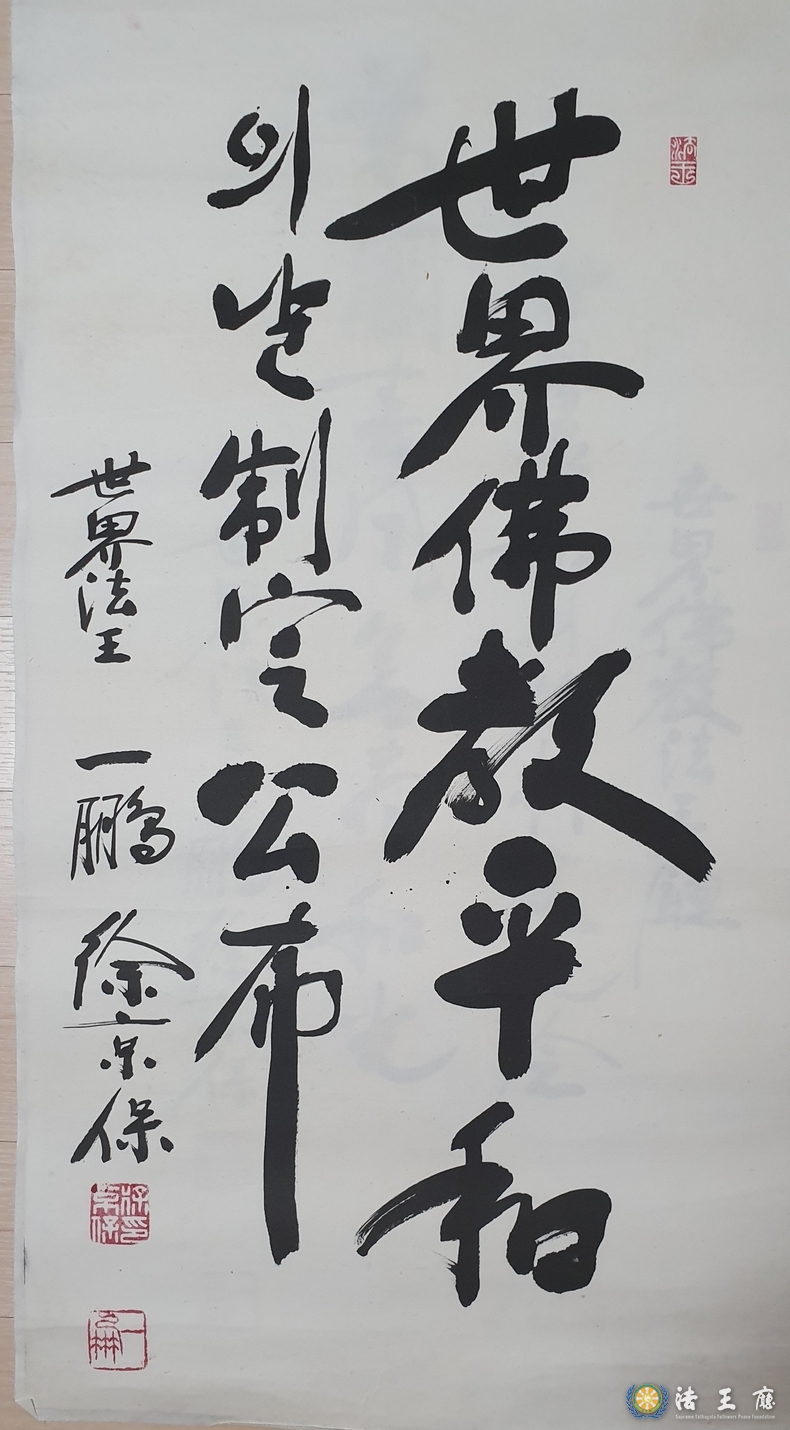 世界佛教平和
의날制定公布
世界法王 一鵬 徐京保
法王廳
Supreme Tathagata Followers Peace Foundation